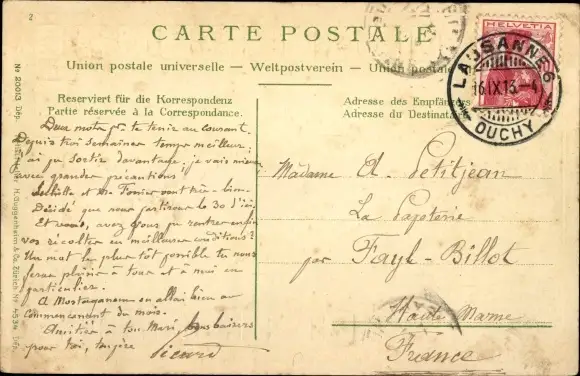 2
CARTE POSTALE
Union postale universelle – Weltpostverein – Union postale
HELVETIA
LAUSANNE 6
16.IX.13.-4
OUCHY
Reserviert für die Korrespondenz
Partie réservée à la Correspondance.
Adresse des Empfängers
Adresse du Destinat
No 20013 Dép.
H. Guggenheim & Co., Zürich No
Deux mots pr te tenir au courant.
Depuis trois semaines temps meilleur,
j'ai pu sortir davantage, je vais mieux
avec grandes précautions
et Mr vont très-bien.
Décidé que nous partirons le 30 d'ici.
Et vous, avez vous pu rentrer enfin
vos récoltes en meilleures conditions?
Un mot le plus tôt possible tu nous
feras plaisir à tous et à moi en
particulier.
A Mostaganem on allait bien au
commencement du mois.
Amitiés à ton Mari, bons baisers
pour toi, ton père
Picard
Madame A. Petitjean
La Papeterie
par Fayl-Billot
Haute Marne
France